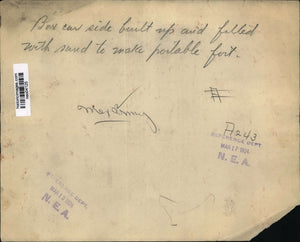 Box car side built up and filled
with sand to make portable fort.
#
Mex Army
A243
REFERENCE DEPT.
MAR 17 1924
N. E. A.
REFERENCE DEPT.
N. E. A.